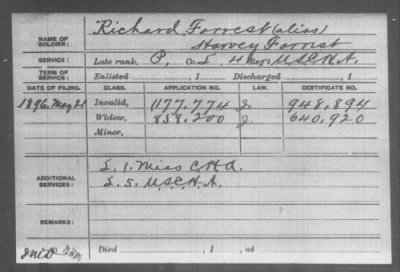 Richard Forrest (alias)
NAME OF SOLDIER: Harvey Forrest
SERVICE: Late rank, P, Co. I, 4 Reg't U.S.C.H.A.
TERM OF SERVICE: Enlisted , 1 Discharged , 1
DATE OF FILING. CLASS. APPLICATION NO. LAW. CERTIFICATE NO.
1896. May 21 Invalid, 1177.774 J. 948,894
Widow, 858.200 J. 640,920
Minor,
L. 1. Miss C.H.A.
ADDITIONAL SERVICES: L. 5. U.S.C.H.A.
REMARKS:
Died , 1 , at